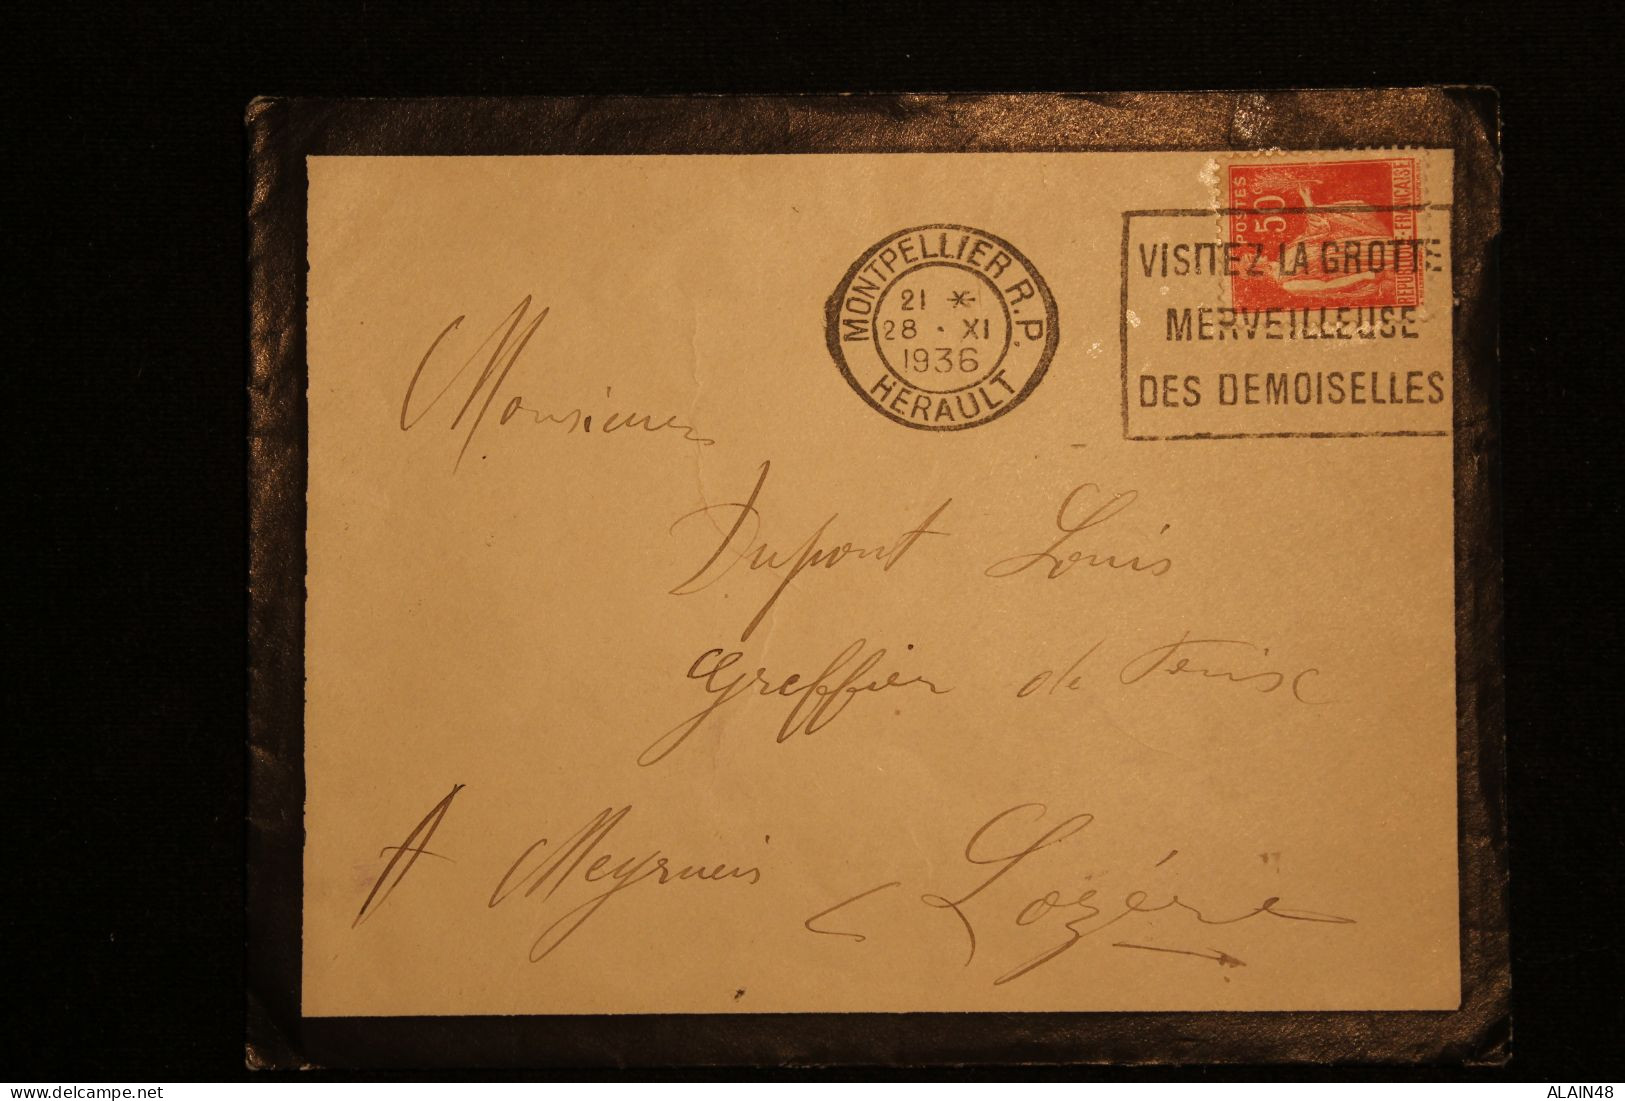 POSTES
50c
REPUBLIQUE FRANCAISE
MONTPELLIER R.P.
21 *
28 . XI
1936
HERAULT
VISITEZ LA GROTTE
MERVEILLEUSE
DES DEMOISELLES
Monsieur
Dupont Louis
Greffier de
A Meyrueis
Lozére
delcampe.net
ALAIN48